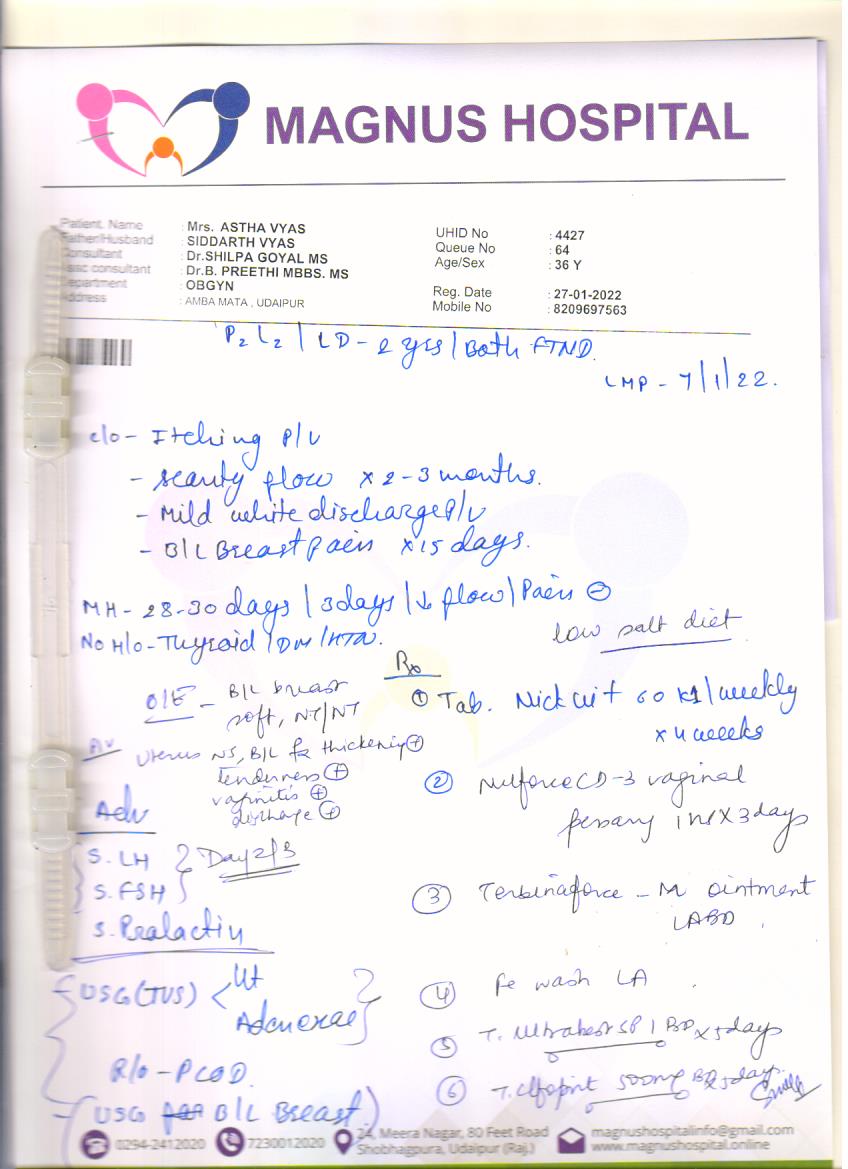 MAGNUS HOSPITAL
Patient. Name : Mrs. ASTHA VYAS
Father/Husband : SIDDARTH VYAS
Consultant : Dr.SHILPA GOYAL MS
consultant : Dr.B. PREETHI MBBS. MS
Department : OBGYN
Address : AMBA MATA , UDAIPUR
UHID No : 4427
Queue No : 64
Age/Sex : 36 Y
Reg. Date : 27-01-2022
Mobile No : 8209697563
P2 L2 / LD - 2 yrs / Both FTND.
LMP - 7/1/22.
c/o - Itching P/V
- scanty flow x 2-3 months.
- Mild white discharge P/V
- B/L Breast pain x 15 days.
MH - 28-30 days / 3 days / ↓ flow / Pain ⊖
No H/o - Thyroid / DM / HTN.
low salt diet
O/E - B/L breast
soft, NT/NT
P/V Uterus NS, B/L fx thickening ⊕
tenderness ⊕
vaginitis ⊕
discharge ⊕
Adv
S. LH
S. FSH
Day 2/3
S. Prolactin
USG (TVS) < Ut
Adenexae
R/o - PCOD.
(USG B/L Breast)
Rx
① Tab. 60 K1 / weekly
x 4 weeks
② CD-3 vaginal
pessary 1 HS x 3 days
③ Terbinaforce - M ointment
LABD
④ wash LA
⑤ T. SP 1 BD x 5 days
⑥ T. 500mg BD x 5 day
0294-2412020
7230012020
24, Meera Nagar, 80 Feet Road
Shobhagpura, Udaipur (Raj.)
magnushospitalinfo@gmail.com
www.magnushospital.online